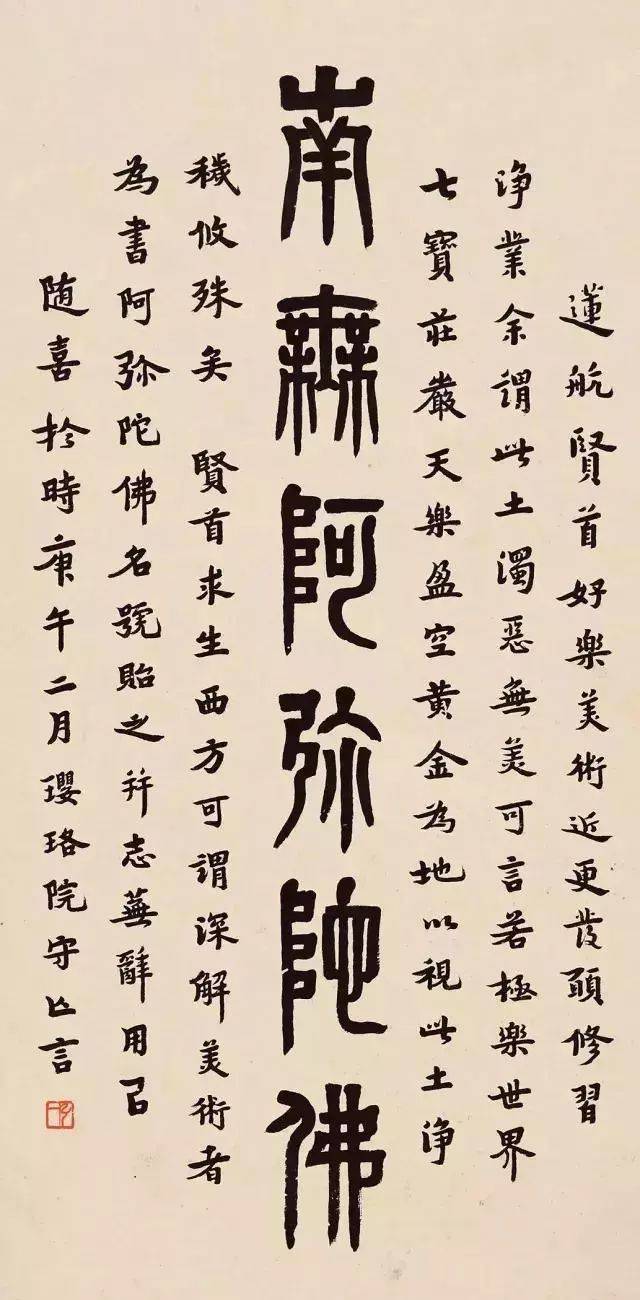 南無阿弥陀佛
蓮航賢首好樂美術近更發願修習
淨業余謂此土濁惡無美可言若極樂世界
七寶莊嚴天樂盈空黃金為地以視此土淨
穢攸殊矣 賢首求生西方可謂深解美術者
為書阿弥陀佛名號貽之并志蕪辭用㠯
随喜於時庚午二月瓔珞院守亾言